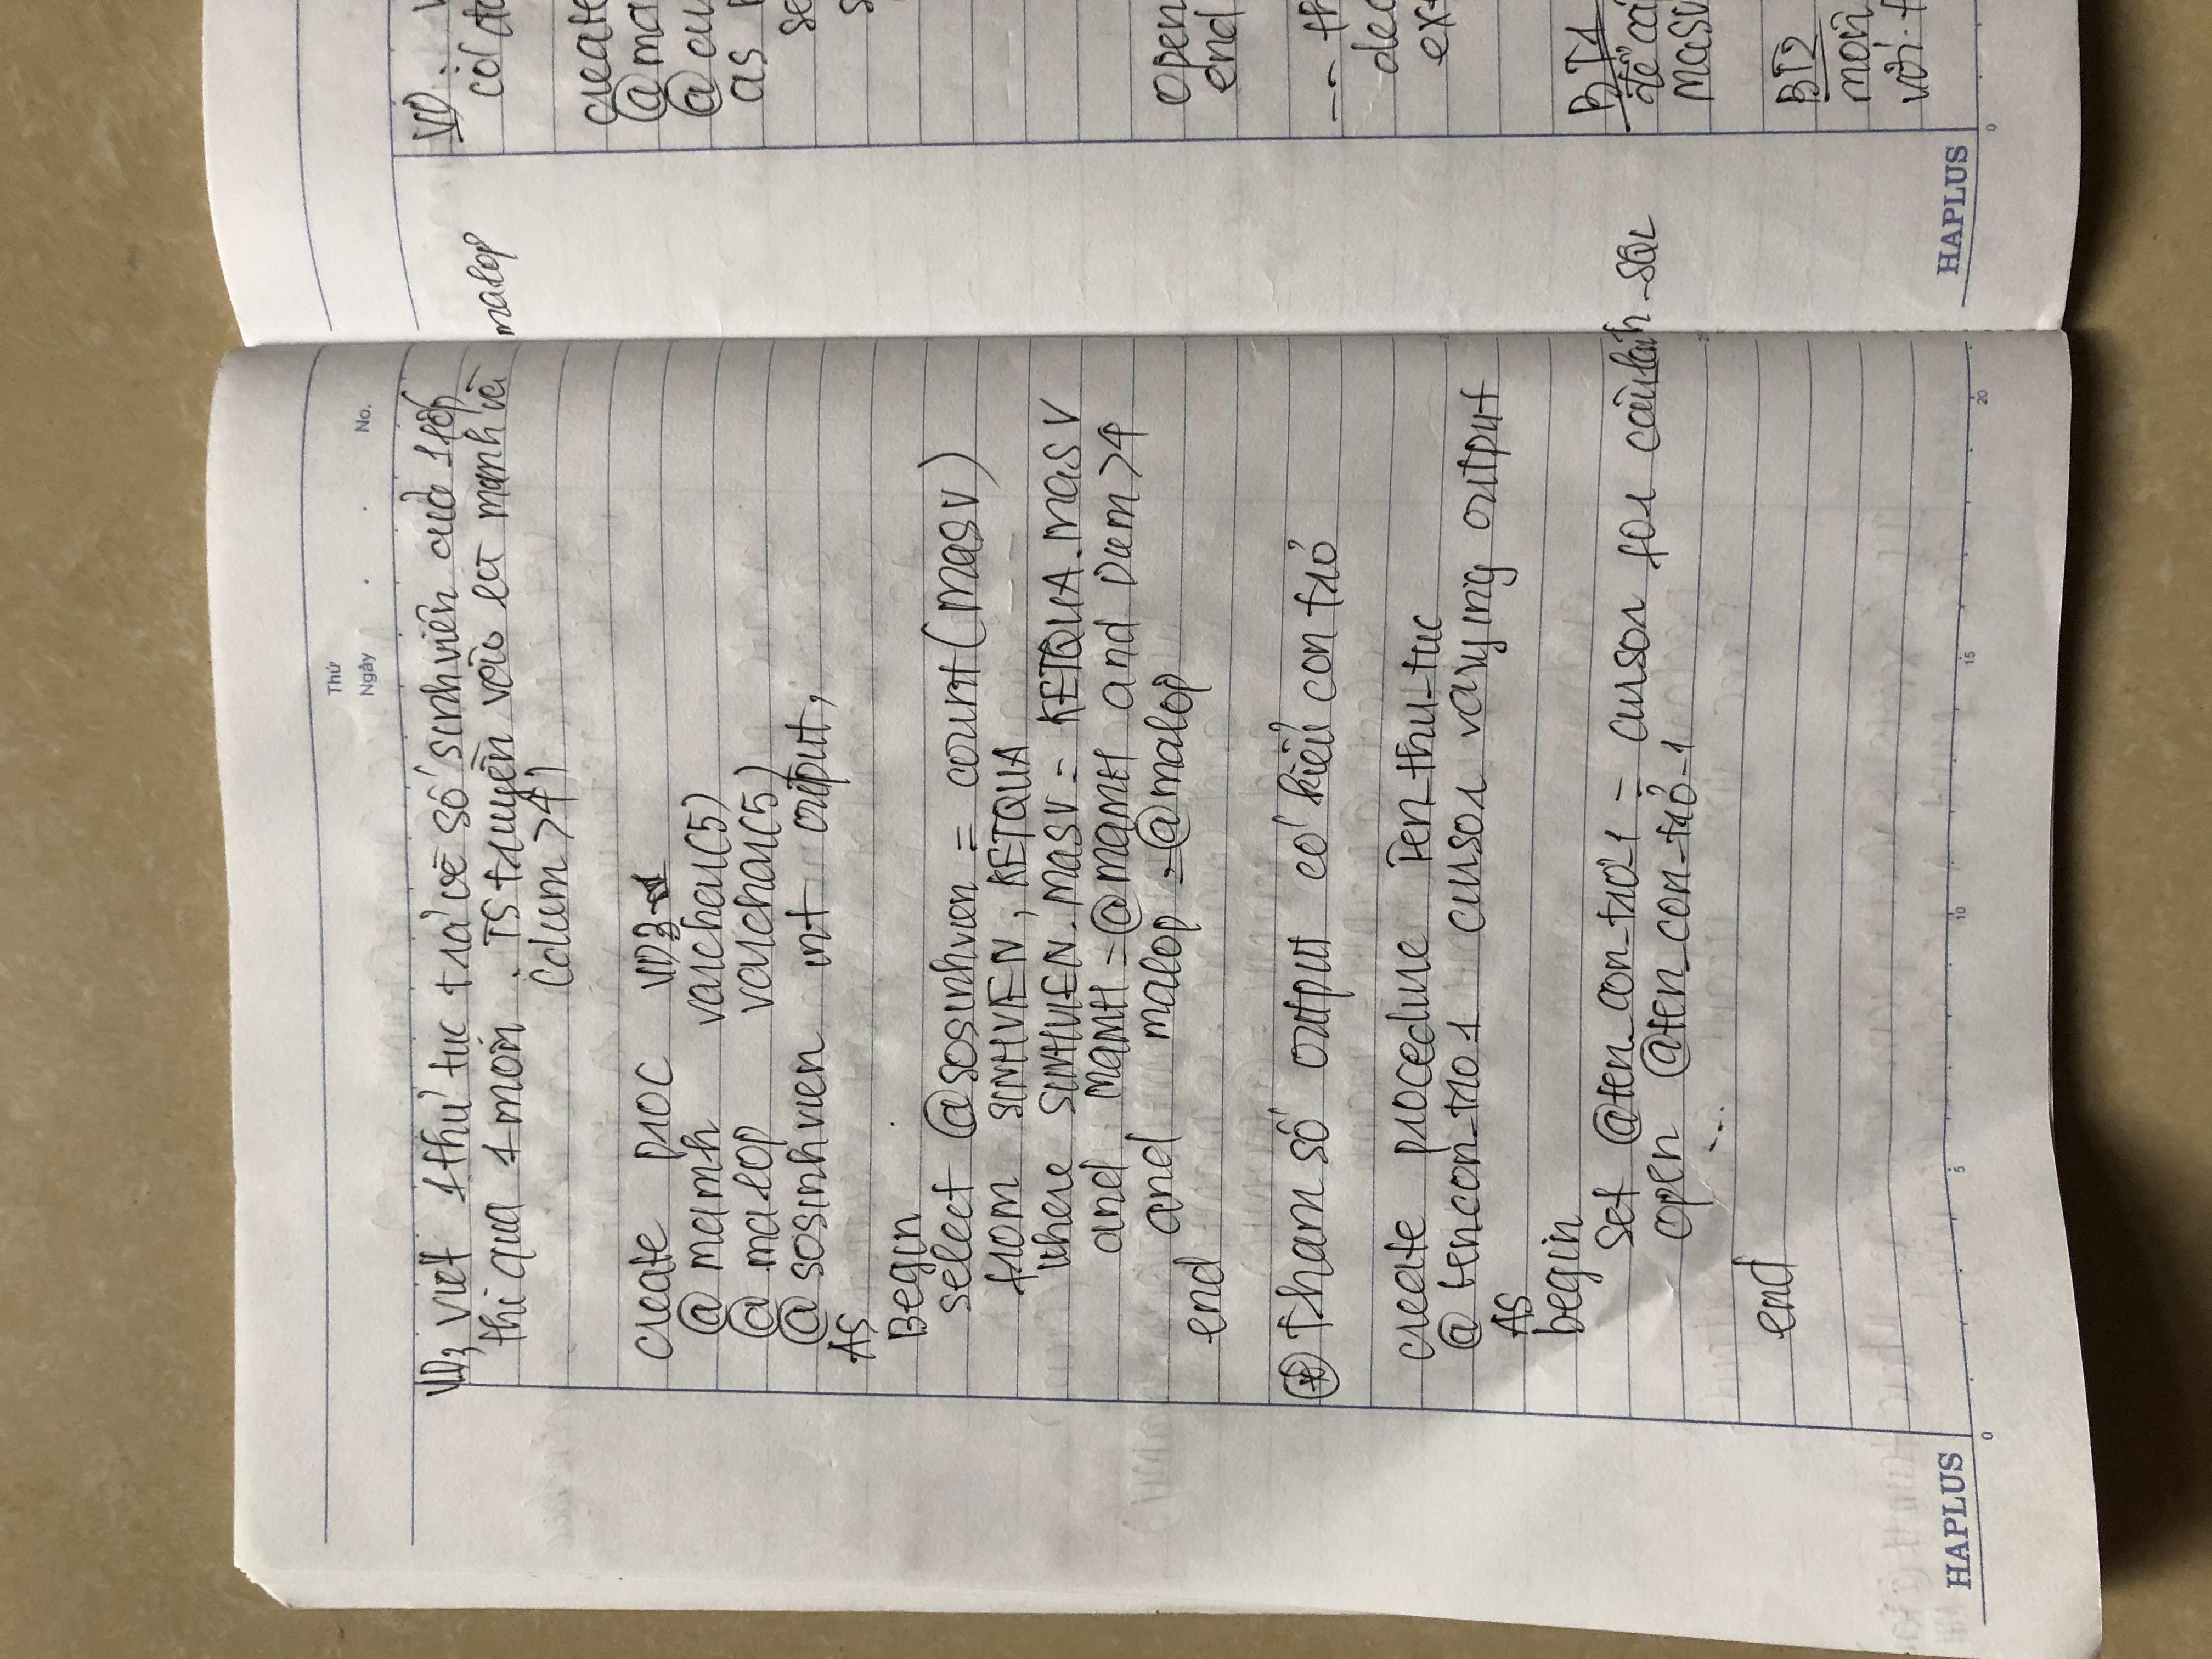 Thứ
Ngày . . No.
VD3 viết 1 thủ tục trả về số sinh viên của 1 lớp
thi qua 1 môn. TS truyền vào là mamh và malop
(diem >4)
create proc VD3
@mamh varchar(5)
@malop varchar(5)
@sosinhvien int output,
AS
Begin
select @sosinhvien = count(MaSV)
from SINHVIEN, KETQUA
where SINHVIEN.MaSV = KETQUA.MaSV
and MaMH = @MaMH and Diem >4
and malop = @malop
end
* Tham số output có kiểu con trỏ
create procedure Ten_thu_tuc
@tencon_tro1 cursor varying output
AS
begin
Set @ten_con_trỏ_1 = cursor for câulệnh_SQL
open @ten_con_trỏ_1
...
end
HAPLUS
0 5 10 15 20
VD.
create
@ma
as
open
end
-- th
dec
BT1
để
MaSV
BT2
môn
với
HAPLUS
0